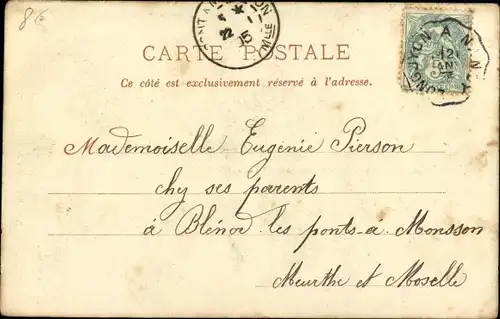 8€
CARTE POSTALE
Ce côté est exclusivement réservé à l'adresse.
Mademoiselle Eugénie Pierson
chez ses parents
à Blénod les ponts-à-Monsson
Meurthe et Moselle